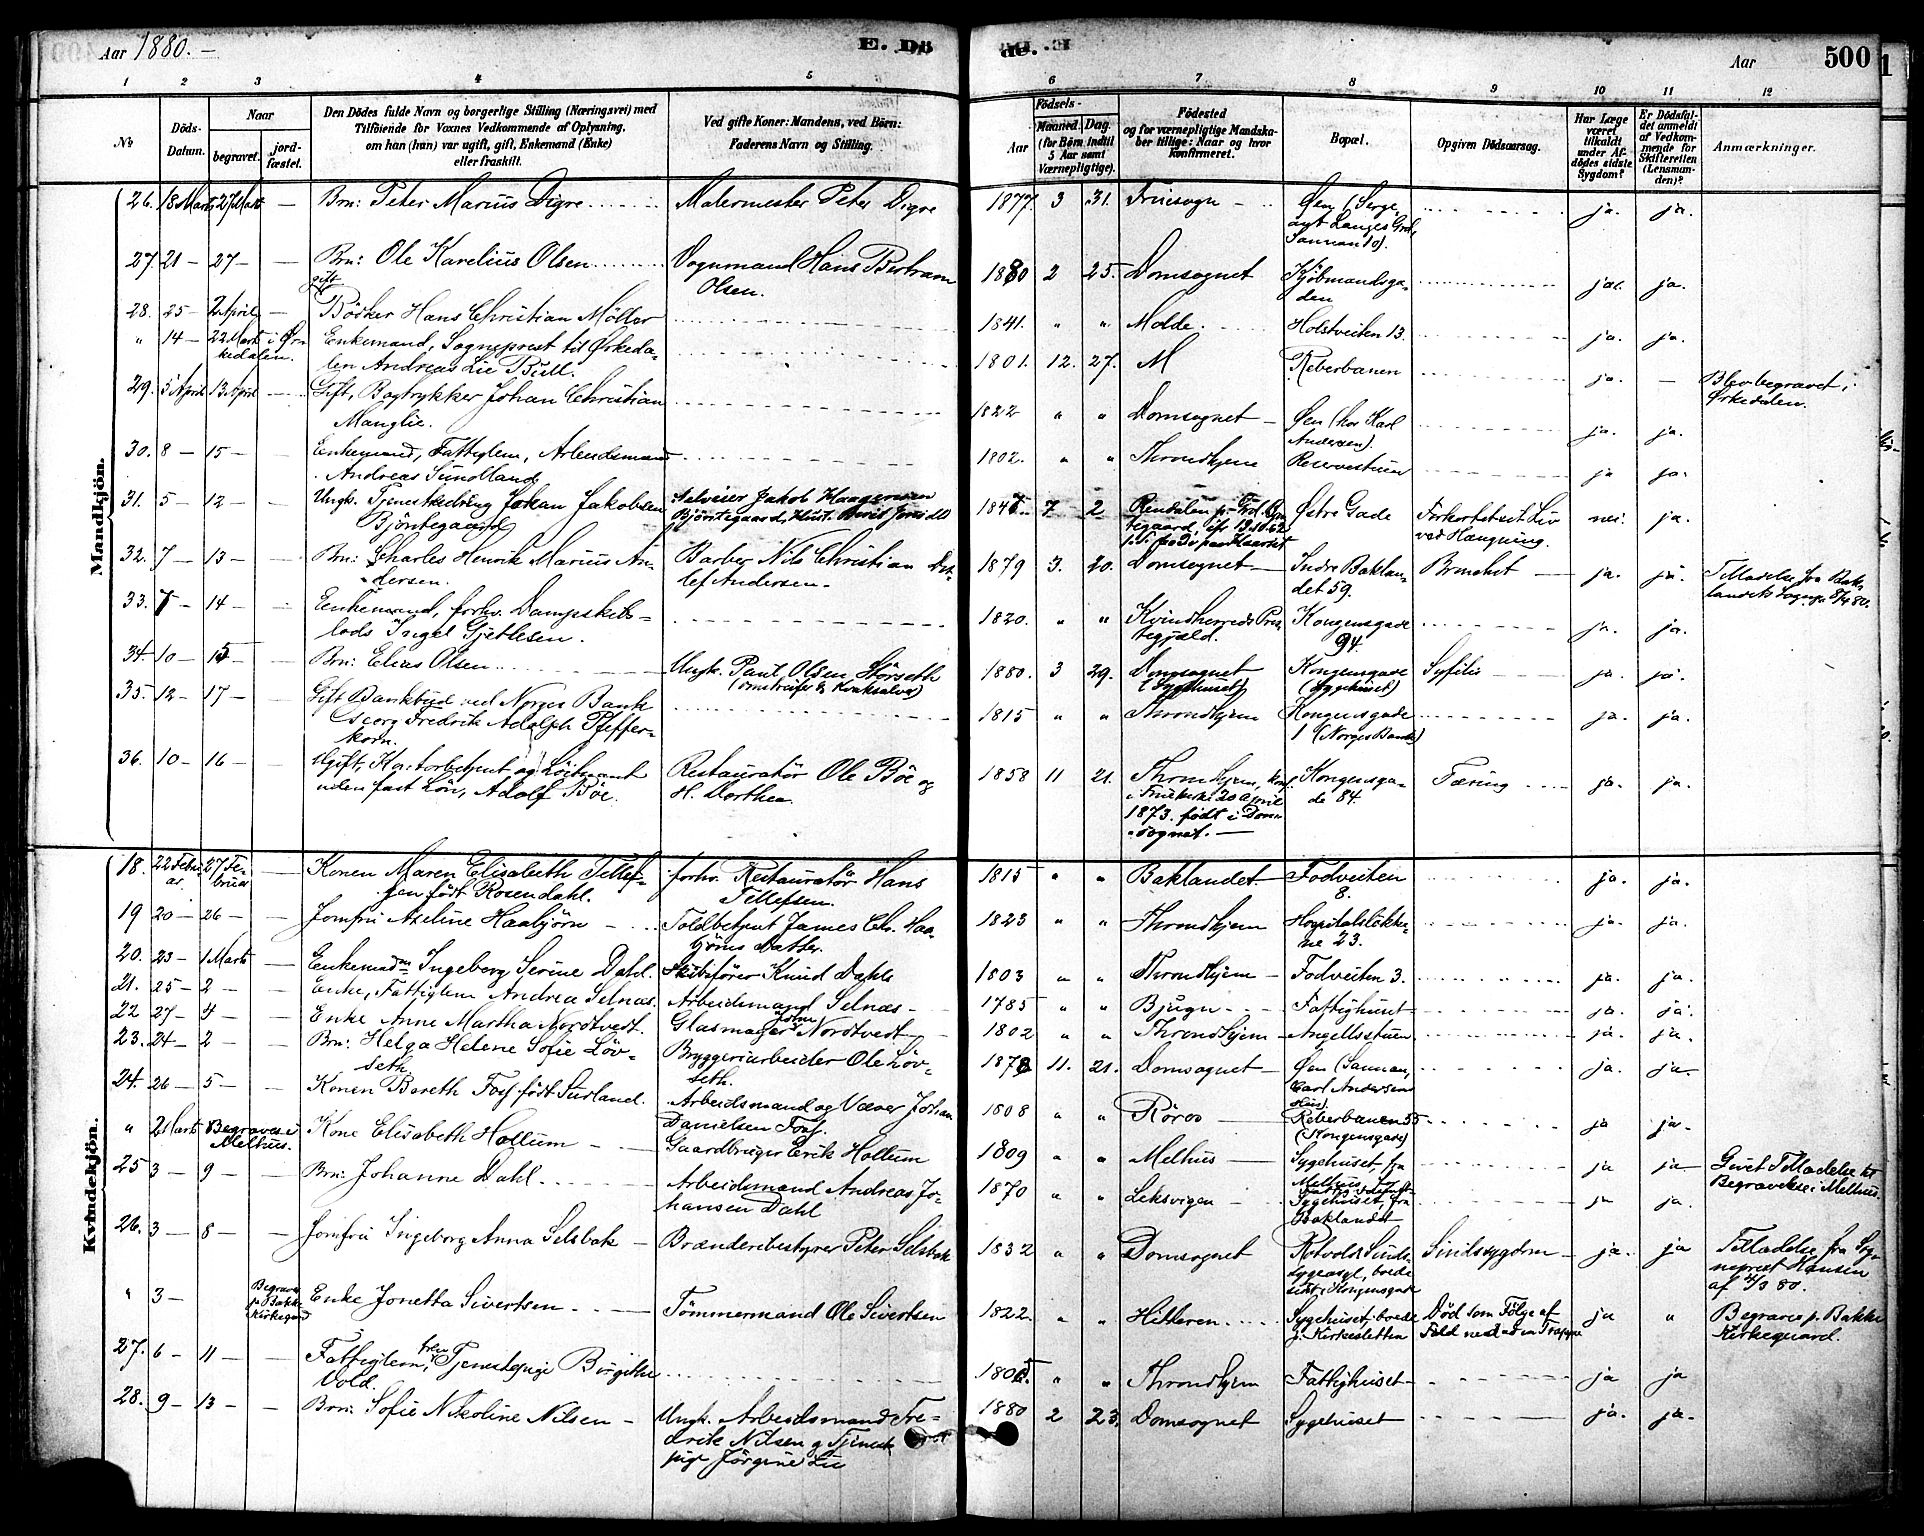 Aar 1880. —
E. Dö
de.
Aar
500
1 2 3 4 5 6 7 8 9 10 11 12
№
Döds-Datum.
Naar
begravet.
jord-fæstet.
Den Dödes fulde Navn og borgerlige Stilling (Næringsvei) med
Tilföiende for Voxnes Vedkommende af Oplysning,
om han (hun) var ugift, gift, Enkemand (Enke)
eller fraskilt.
Ved gifte Koner: Mandens, ved Börn:
Faderens Navn og Stilling.
Födsels-
Aar
Maaned. Dag.
(for Börn indtil
5 Aar samt
Værnepligtige).
Födested
og for værnepligtige Mandska-
ber tillige: Naar og hvor
konfirmeret.
Bopæl.
Opgiven Dödsaarsag.
Har Læge
været
tilkaldt
under Af-
dödes sidste
Sygdom?
Er Dödsfal-
det anmeldt
af Vedkom-
mende for
Skifteretten
(Lensman-
den)?
Anmærkninger.
Mandkjön.
26. 18 Marts 27 Marts — Brn: Peter Marius Digre Malermester Peter Digre 1877. 3 31. Fruesogn Øen ja. ja.
27. 21 — 27 — — Brn: Ole Karelius Olsen Vognmand Hans Bertram
Olsen. 1880 2 25. Domsognet Kjöbmandsga-
den ja. ja.
28. 25 — 2 April — gift Bödker Hans Christian Möller 1841. " " Molde. Holstveiten 13. ja. ja.
" 14 — 22 Marts i Ør-
kedalen. Enkemand, Sogneprest til Ørkeda-
len Andreas Lie Bull. 1801. 12. 27. M Reberbanen ja. — Blev begravet i
Ørkedalen.
29. 5 April 13 April — Gift, Bogtrykker Johan Christian
Manglie. 1822 " " Domsognet Øen (hos Karl
Andersen). ja. ja.
30. 8 — 15 — Enkemand, Fattiglem, Arbeidsmand
Andreas Sundland 1802. " " Throndhjem Reservestuen ja ja.
31. 5 — 12 — Ungk. Johan Jakobsen
Bjöntegaard Selveier Jakob Haagensen
Bjöntegaard, Hust. 7 2 Rendalen Østre Gade Forkortet sit Liv
ved Hængning. nei. ja.
32. 7 — 13 — Brn: Charles Henrik Marius An-
dersen. Barber Nils Christian Det-
lef Andersen. 1879 3. 20. Domsognet Indre Baklan-
det 59. Bronchit ja. ja. Tilladelse fra Bak-
landets Sogn 8/4 80.
33. 7 — 14 — Enkemand, forhv. Dampskibs-
lods Ingel Gjetlesen. 1820. " " Kvindherreds Pres-
tegjæld. Kongensgade
94 ja. ja.
34. 10 — 15 — Brn: Elias Olsen Ungk. Paul Olsen Störseth
(omstreifer & Kvaksalver) 1880. 3 29. Domsognet
(Sygehuset) Kongensgade
(Sygehuset) Syfilis ja. ja.
35. 12 — 17 — Gift Bankbud ved Norges Bank
Georg Fredrik Adolph Pfeffer-
korn. 1815 " " Throndhjem Kongensgade
1 (Norges Bank) ja. ja.
36. 10 — 16 — Ugift, Kontorbetjent og Löitnant
uden fast Lön, Adolf Böe. Restauratör Ole Böe og
H. Dorthea 1858 11 21. Throndhjem, konf.
i Fruekirke 20 April
1873. födt i Dom-
sognet. — Kongensga-
de 84. Tæring ja. ja.
Kvindekjön.
18. 22 Febru-
ar. 27 Fe-
bruar — Konen Maren Elisabeth Tellef-
sen födt Rosendahl. forhv. Restauratör Hans
Tellefsen. 1815 " " Baklandet Fodveiten
8. ja. ja.
19 20 — 26 — — Jomfru Axeline Haabjörn Toldbetjent James Chr. Haa-
björns Datter. 1823 " " Throndhjem Hospitalslökke-
ne 23. ja. ja.
20. 23 — 1 Marts — Enkemadm Ingeborg Serine Dahl. Skibsförer Knud Dahls 1803 " " Throndhjem — Fodveiten 3. ja. ja.
21. 25 — 2 — Enke, Fattiglem Andrea Selnæs. Arbeidsmand Selnæs 1785 " " Bjugn Fattighuset ja. ja.
22 27 — 4 — Enke Anne Martha Nordtvedt. Glasmager John Nordtvedt 1802 " " Throndhjem Angellsstuen ja. ja.
23. 24 — 2 — Brn: Helga Helene Sofie Löv-
seth. Bryggeriarbeider Ole Löv-
seth. 11. 21. Domsognet Øen (Sannan,
Carl Andersens
Hus). ja. ja.
24. 26 — 5 — Konen Bereth Foss födt Surland. Arbeidsmand og Væver Johan
Danielsen Foss. 1808 " " Röros Reberbanen 55
(Kongensgade) ja ja.
" 2 Marts Begraves i
Melhus. Kone Elisabeth Hollum Gaardbruger Erik Hollum 1809 " " Melhus Sygehuset, fra
Melhus ja ja Givet Tilladelse til
Begravelse i Melhus.
25 3 — 9 — Brn: Johanne Dahl Arbeidsmand Andreas Jo-
hansen Dahl 1870 " " Leksvigen Sygehuset, fra
Baklandet ja ja.
26. 3 — 8 — Jomfru Ingeborg Anna Selsbak Brænderibestyrer Peter Selsbak 1832 " " Domsognet Rotvolds Sinds-
sygeasyl, boede
sidst i Kongensgade Sindssygdom ja. ja Tilladelse fra Sog-
neprest Hansen
af 4/3 80.
" 3 — Begraves
p. Bakke
Kirkegaard Enke Jonetta Sivertsen Tömmermand Ole Sivertsen 1822. " " Hitteren Sygehuset, boede
p. Kirkesletten Död som Fölge af
Fald ned ad en Trappe ja " Begraves p. Bakke
Kirkegaard.
27. 6 — 11 — Fattiglem, frhv Tjenestepige Birgitte
Vold. " " Throndhjem Fattighuset ja ja
28. 9 — 13 — Brn: Sofie Nikoline Nilsen Ungk. Arbeidsmand Fre-
drik Nilsen og Tjeneste-
pige Jörgine Lie 1880 2 23. Domsognet Sygehuset ja. ja.